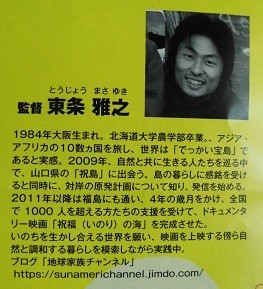 とうじょう まさ ゆき
監督 東条 雅之
1984年大阪生まれ。北海道大学農学部卒業。、アジア・
アフリカの10数ヵ国を旅し、世界は「でっかい宝島」で
あると実感。2009年、自然と共に生きる人たちを巡る中
で、山口県の「祝島」に出会う。島の暮らしに感銘を受け
ると同時に、対岸の原発計画について知り、発信を始める。
2011年以降は福島にも通い、4年の歳月をかけ、全国
で1000人を超える方たちの支援を受けて、ドキュメンタ
リー映画「祝福（いのり）の海」を完成させた。
いのちを生かし合える世界を願い、映画を上映する傍ら自然
と調和する暮らしを模索しながら実践中。
ブログ「地球家族チャンネル」
https://sunamerichannel.jimdo.com/